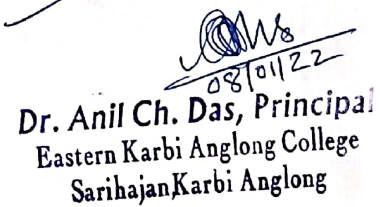 08/01/22
Dr. Anil Ch. Das, Principal
Eastern Karbi Anglong College
Sarihajan,Karbi Anglong